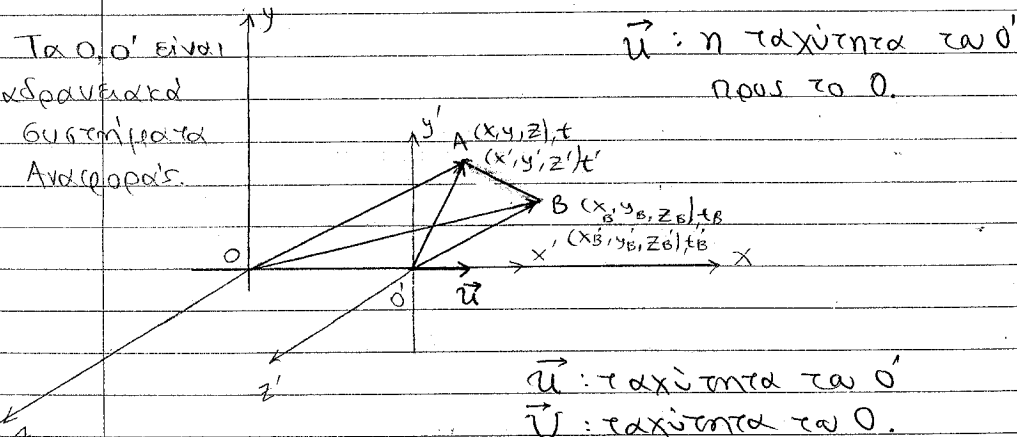 y
Τα Ο, Ο' είναι
αδρανειακά
συστήματα
Αναφοράς.
u⃗ : η ταχύτητα του Ο'
προς το Ο.
y'
A (x, y, z), t
(x', y', z') t'
B (x_B, y_B, z_B), t_B
(x_B', y_B', z_B'), t_B'
O
O'
u⃗
x'
x
z'
u⃗ : ταχύτητα του Ο'
υ⃗ : ταχύτητα του Ο.